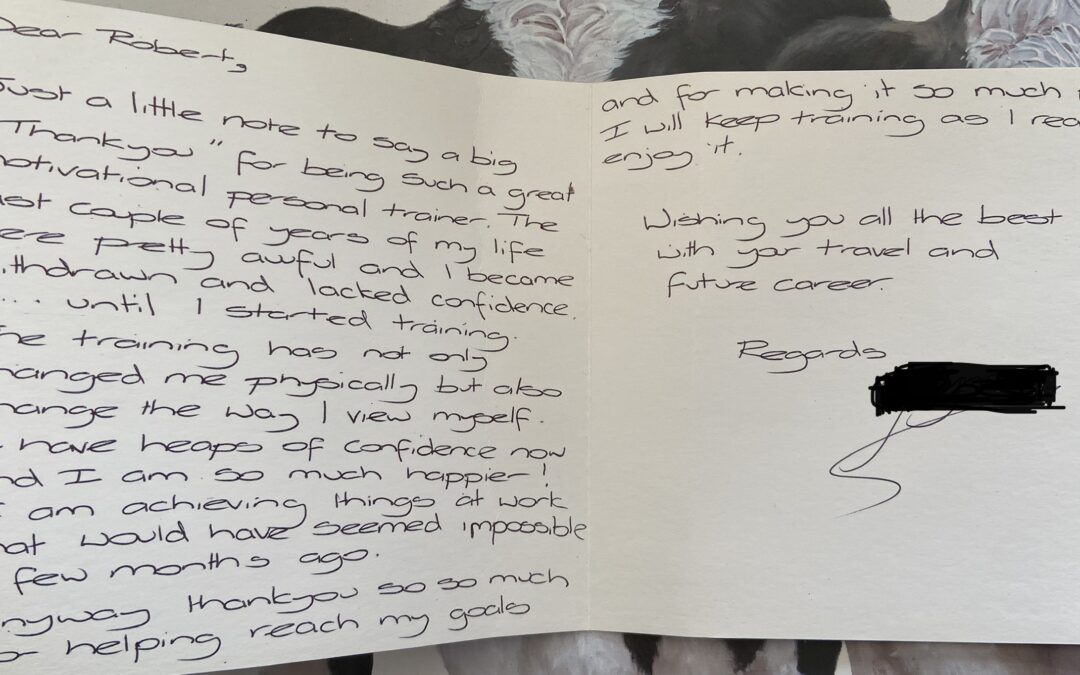 Dear Robert,
Just a little note to say a big
"Thankyou" for being such a great
motivational personal trainer. The
last couple of years of my life
were pretty awful and I became
withdrawn and lacked confidence.
.... until I started training.
The training has not only
changed me physically but also
change the way I view myself.
I have heaps of confidence now
and I am so much happier!
I am achieving things at work
that would have seemed impossible
a few months ago.
Anyway thankyou so so much
for helping reach my goals
and for making it so much
I will keep training as I
enjoy it.
Wishing you all the best
with your travel and
future career.
Regards